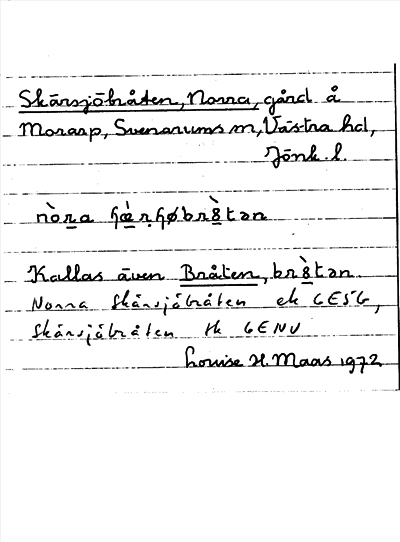 Skärsjöbråten, Norra, gård å
Morarp, Svenarums sn, Västra hd,
Jönk. l.
nòr̲a ɧæ̲̀ṛɧøbr８̲̀tən
Kallas även Bråten, br８̲̀tən
Norra Skärsjöbråten ek 6E5G,
Skärsjöbråten tk GENV
Louise H. Maas 1972